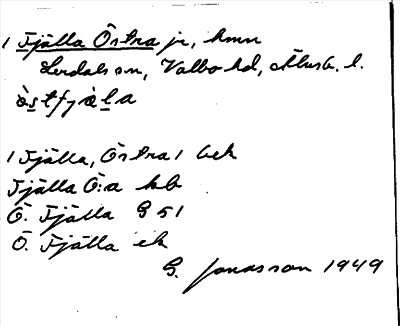 1 Fjälla Östra jr, hmn
Lerdals sn, Valbo hd, Älvsb. l.
ö̀stfjæ̀la
1 Fjälla, Östra 1 Gek
Fjälla Ö:a kb
Ö. Fjälla G 51
Ö. Fjälla ek
G. Jonasson 1949